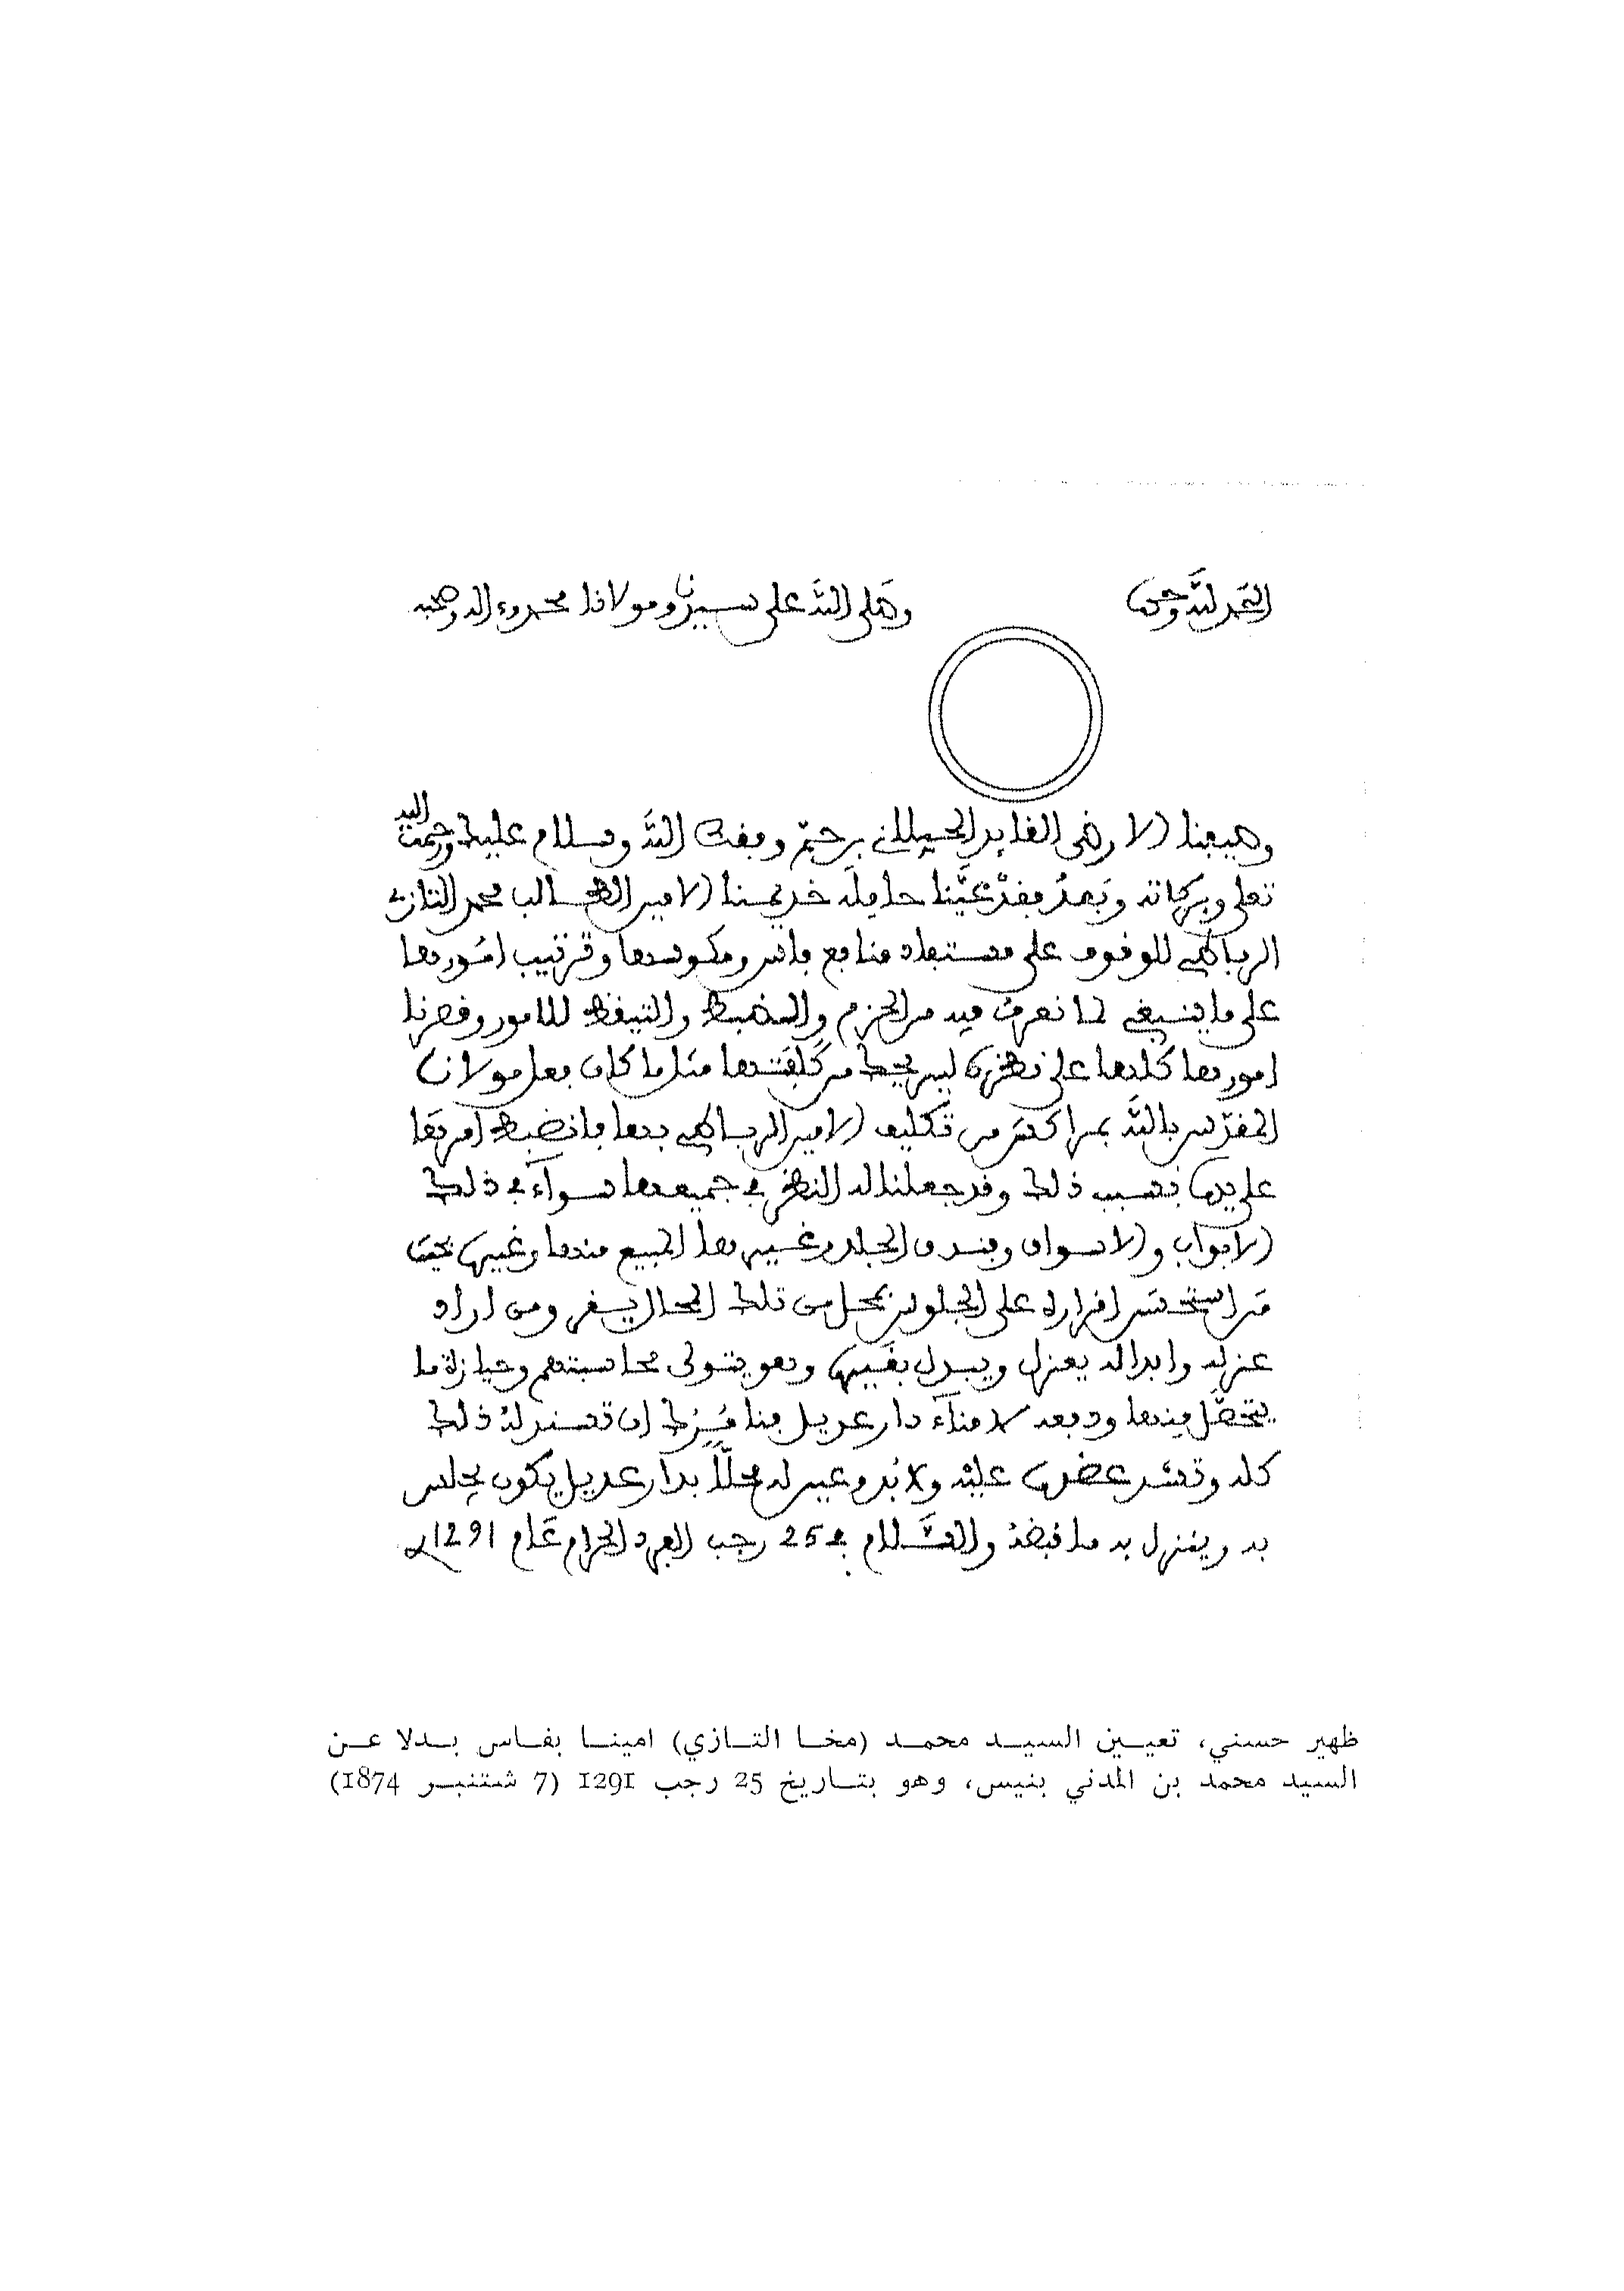 الحمد لله وحده
وصلى الله على سيدنا ومولانا محمد وءاله وصحبه
وصيفنا الارضى القايد الجيلالي بن حم وفقك الله وسلام عليك ورحمت الله
تعلى وبركاته وبعد فقد عينا حامله خديمنا الامين الطالب محمد التازي
الرباطي للوقوف على مستفاد منافع فاس ومكوسها وترتيب امورها
على ما ينبغي لما نعرف فيه من الحزم والضبط والتيقظ للامور وقصرنا
امورها كلها على نظره ليس يحط من كلفتها مثل ما كان بعل مولانا
المقدس بالله بمراكش من تكليف الامين الرباطي بها فانضبط امرها
على يده بسبب ذلك وقد جعلنا له النظر في جميعها سواء في ذلك
الابواب والاسواق وفندق الجلد وغيرها المبيع منها وغيره بحيث
من استحسن اقراره على الجلوس بمحل من تلك المحال يقر ومن اراد
عزله وابداله يعزل ويبدل بغيره وهو يتولى محاسبتهم وحيازة ما
يتحصل منها ودفعه لامناء دار عديل فنامرك ان تسند له ذلك
كله وتشد عضده عليه ولا بد وعين له محلا بدار عديل يكون يجلس
به وينزل به ما قبضه والسلام في 25 رجب الفرد الحرام عام 1291
ظهير حسني، تعيين السيد محمد (مخا التازي) امينا بفاس بدلا عن
السيد محمد بن المدني بنيس، وهو بتاريخ 25 رجب 1291 (7 شتنبر 1874)